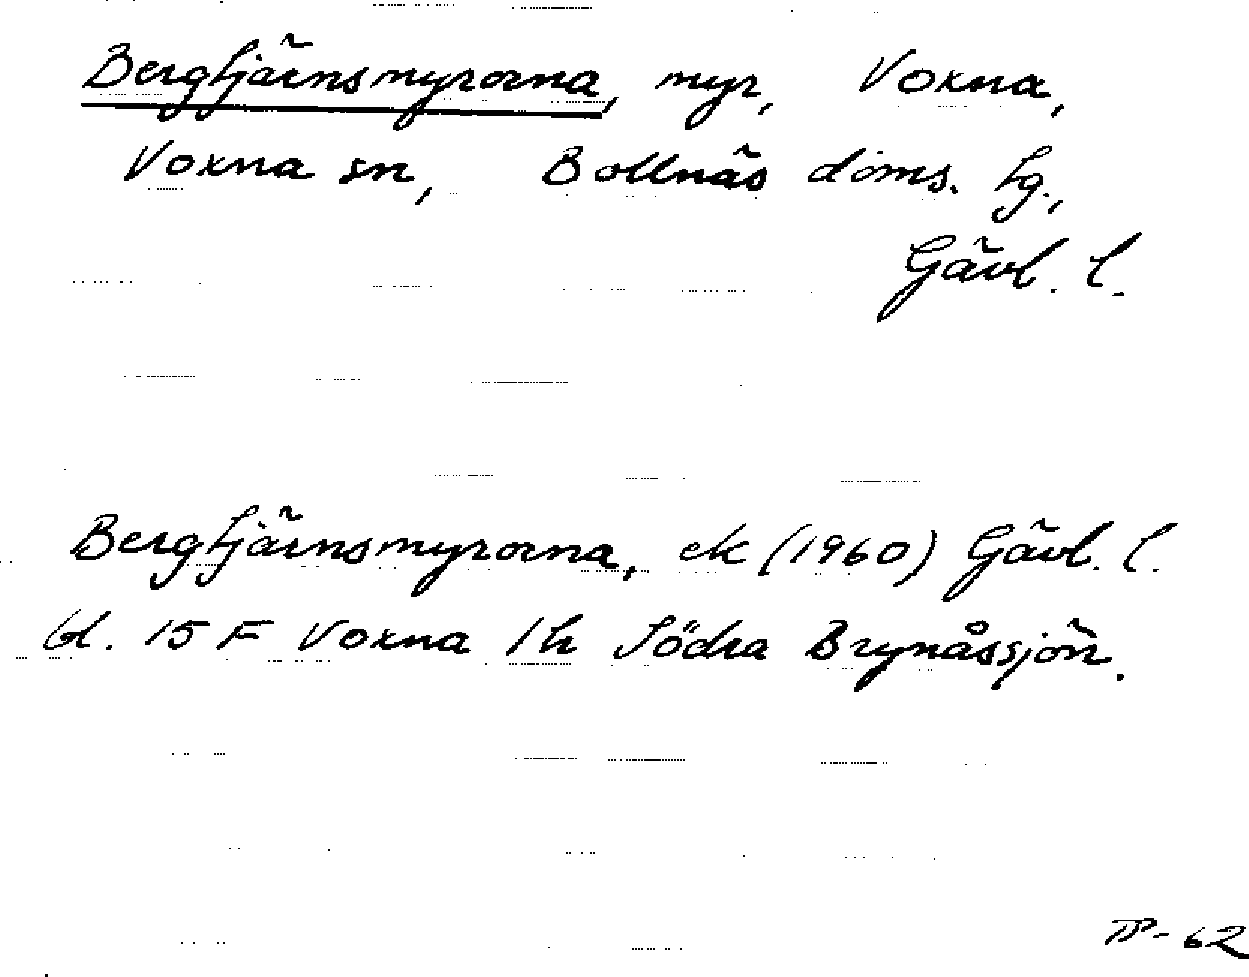 Bergtjärnsmyrorna, myr, Voxna,
Voxna sn, Bollnäs doms. tg.,
Gävl. l.
Bergtjärnsmyrorna, ek (1960) Gävl. l.
bl. 15 F Voxna 1h Södra Brynåssjön.
TP-62